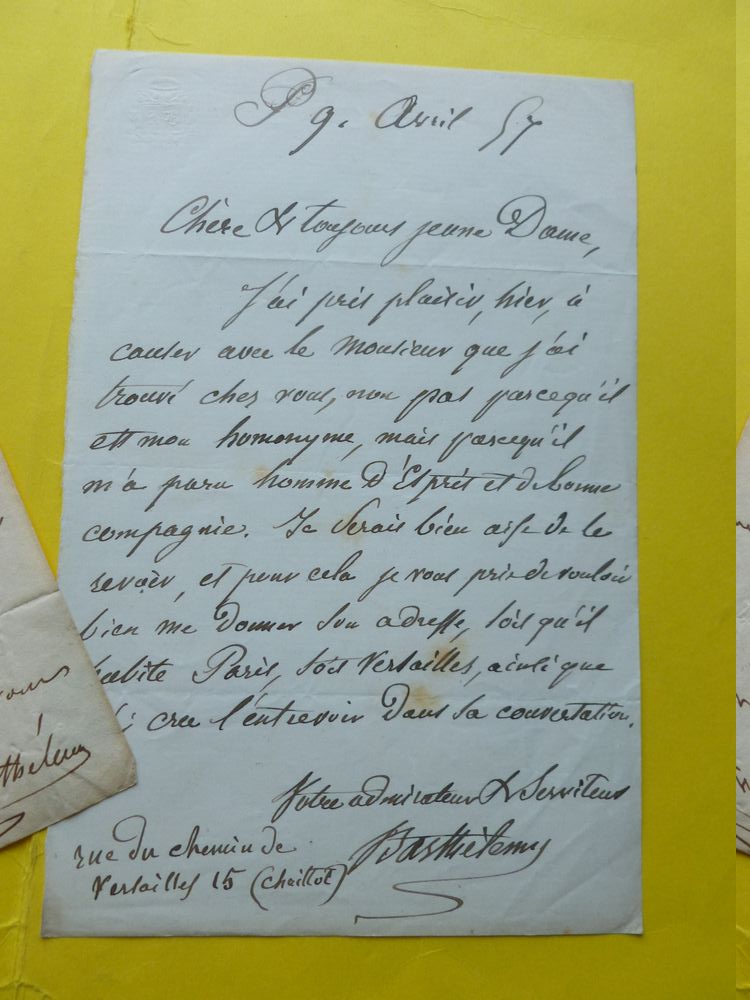 P 9. Avril 57
Chère & toujours jeune Dame,
J'ai pris plaisir, hier, à
causer avec le Monsieur que j'ai
trouvé chez vous, non pas parcequ'il
est mon homonyme, mais parcequ'il
m'a paru homme d'Esprit et de bonne
compagnie. Je serais bien aise de le
revoir, et pour cela je vous prie de vouloir
bien me donner son adresse, soit qu'il
habite Paris, soit Versailles, ainsi que
j'ai cru l'entrevoir dans sa conversation.
Votre admirateur & Serviteur
Barthélemy
rue du chemin de
Versailles 15 (chaillot)